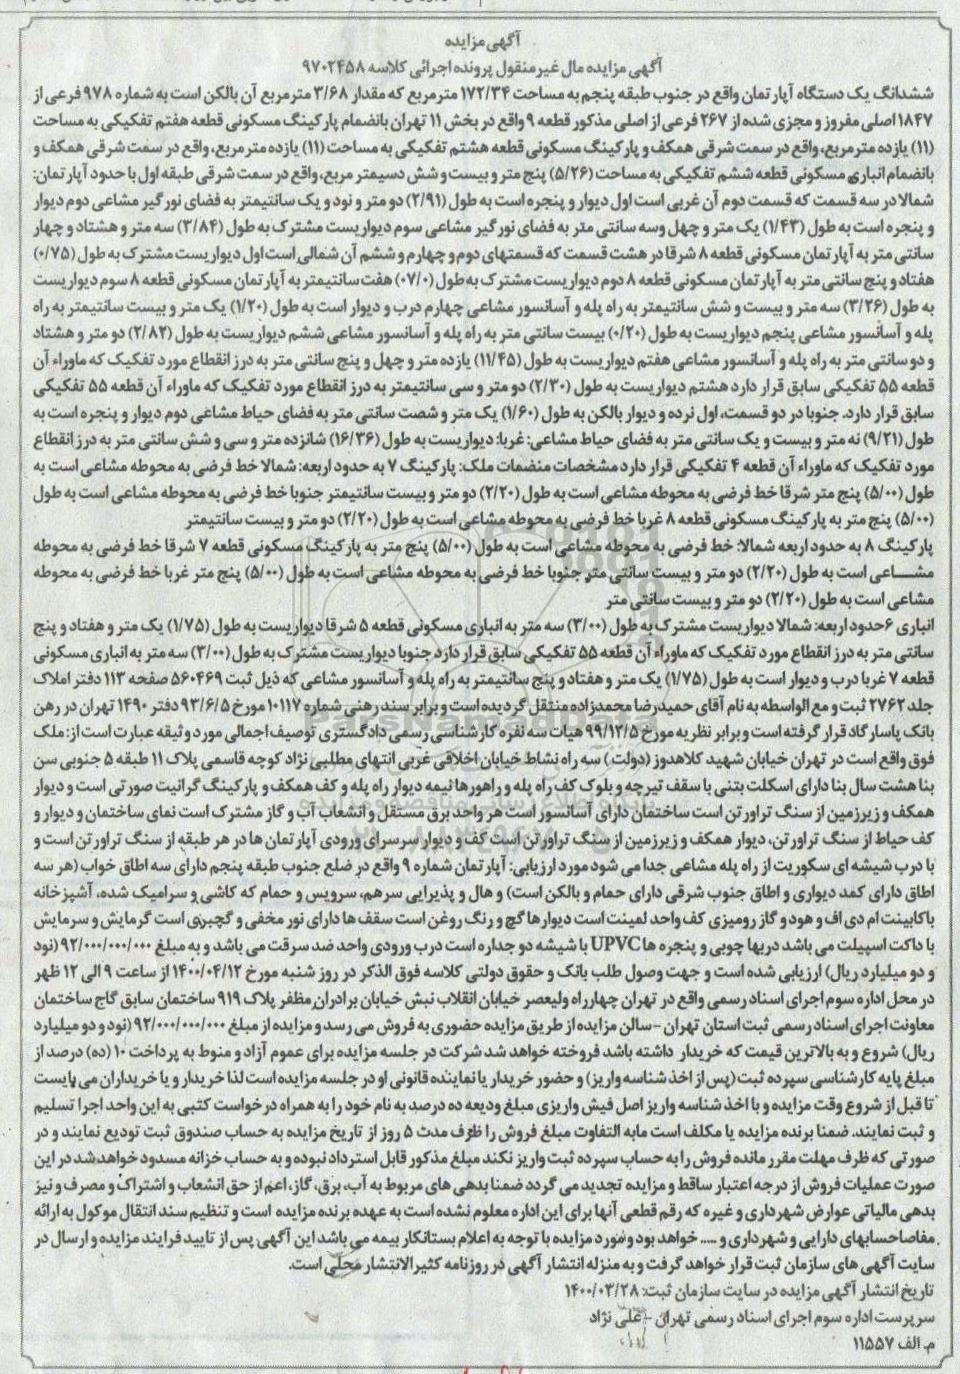 آگهی مزایده
آگهی مزایده مال غیرمنقول پرونده اجرائی کلاسه ۹۷۰۲۴۵۸
ششدانگ یک دستگاه آپارتمان واقع در جنوب طبقه پنجم به مساحت ۱۷۲/۳۴ مترمربع که مقدار ۳/۶۸ مترمربع آن بالکن است به شماره ۹۷۸ فرعی از
۱۸۴۷ اصلی مفروز و مجزی شده از ۲۶۷ فرعی از اصلی مذکور قطعه ۹ واقع در بخش ۱۱ تهران بانضمام پارکینگ مسکونی قطعه هفتم تفکیکی به مساحت
(۱۱) یازده مترمربع، واقع در سمت شرقی همکف و پارکینگ مسکونی قطعه هشتم تفکیکی به مساحت (۱۱) یازده مترمربع، واقع در سمت شرقی همکف و
بانضمام انباری مسکونی قطعه ششم تفکیکی به مساحت (۵/۲۶) پنج متر و بیست و شش دسیمتر مربع، واقع در سمت شرقی طبقه اول با حدود آپارتمان:
شمالا در سه قسمت که قسمت دوم آن غربی است اول دیوار و پنجره است به طول (۲/۹۱) دو متر و نود و یک سانتیمتر به فضای نورگیر مشاعی دوم دیوار
و پنجره است به طول (۱/۴۳) یک متر و چهل وسه سانتی متر به فضای نورگیر مشاعی سوم دیواریست مشترک به طول (۳/۸۴) سه متر و هشتاد و چهار
سانتی متر به آپارتمان مسکونی قطعه ۸ شرقا در هشت قسمت که قسمتهای دوم و چهارم و ششم آن شمالی است اول دیواریست مشترک به طول (۰/۷۵)
هفتاد و پنج سانتی متر به آپارتمان مسکونی قطعه ۸ دوم دیواریست مشترک به طول (۰۷/۰) هفت سانتیمتر به آپارتمان مسکونی قطعه ۸ سوم دیواریست
به طول (۳/۲۶) سه متر و بیست و شش سانتیمتر به راه پله و آسانسور مشاعی چهارم درب و دیوار است به طول (۱/۲۰) یک متر و بیست سانتیمتر به راه
پله و آسانسور مشاعی پنجم دیواریست به طول (۰/۲۰) بیست سانتی متر به راه پله و آسانسور مشاعی ششم دیواریست به طول (۲/۸۲) دو متر و هشتاد
و دو سانتی متر به راه پله و آسانسور مشاعی هفتم دیواریست به طول (۱۱/۴۵) یازده متر و چهل و پنج سانتی متر به درز انقطاع مورد تفکیک که ماوراء آن
قطعه ۵۵ تفکیکی سابق قرار دارد هشتم دیواریست به طول (۲/۳۰) دو متر و سی سانتیمتر به درز انقطاع مورد تفکیک که ماوراء آن قطعه ۵۵ تفکیکی
سابق قرار دارد. جنوبا در دو قسمت، اول نرده و دیوار بالکن به طول (۱/۶۰) یک متر و شصت سانتی متر به فضای حیاط مشاعی دوم دیوار و پنجره است به
طول (۹/۲۱) نه متر و بیست و یک سانتی متر به فضای حیاط مشاعی: غربا: دیواریست به طول (۱۶/۳۶) شانزده متر و سی و شش سانتی متر به درز انقطاع
مورد تفکیک که ماوراء آن قطعه ۴ تفکیکی قرار دارد مشخصات منضمات ملک: پارکینگ ۷ به حدود اربعه: شمالا خط فرضی به محوطه مشاعی است به
طول (۵/۰۰) پنج متر شرقا خط فرضی به محوطه مشاعی است به طول (۲/۲۰) دو متر و بیست سانتیمتر جنوبا خط فرضی به محوطه مشاعی است به طول
(۵/۰۰) پنج متر به پارکینگ مسکونی قطعه ۸ غربا خط فرضی به محوطه مشاعی است به طول (۲/۲۰) دو متر و بیست سانتیمتر
پارکینگ ۸ به حدود اربعه شمالا: خط فرضی به محوطه مشاعی است به طول (۵/۰۰) پنج متر به پارکینگ مسکونی قطعه ۷ شرقا خط فرضی به محوطه
مشــاعی است به طول (۲/۲۰) دو متر و بیست سانتی متر جنوبا خط فرضی به محوطه مشاعی است به طول (۵/۰۰) پنج متر غربا خط فرضی به محوطه
مشاعی است به طول (۲/۲۰) دو متر و بیست سانتی متر
انباری ۶ حدود اربعه: شمالا دیواریست مشترک به طول (۳/۰۰) سه متر به انباری مسکونی قطعه ۵ شرقا دیواریست به طول (۱/۷۵) یک متر و هفتاد و پنج
سانتی متر به درز انقطاع مورد تفکیک که ماوراء آن قطعه ۵۵ تفکیکی سابق قرار دارد جنوبا دیواریست مشترک به طول (۳/۰۰) سه متر به انباری مسکونی
قطعه ۷ غربا درب و دیوار است به طول (۱/۷۵) یک متر و هفتاد و پنج سانتیمتر به راه پله و آسانسور مشاعی که ذیل ثبت ۵۶۰۴۶۹ صفحه ۱۱۳ دفتر املاک
جلد ۲۷۶۲ ثبت و مع الواسطه به نام آقای حمیدرضا محمدزاده منتقل گردیده است و برابر سند رهنی شماره ۱۰۱۱۷ مورخ ۹۳/۶/۵ دفتر ۱۴۹۰ تهران در رهن
بانک پاسارگاد قرار گرفته است و برابر نظریه مورخ ۹۹/۱۲/۵ هیات سه نفره کارشناسی رسمی دادگستری توصیف اجمالی مورد وثیقه عبارت است از: ملک
فوق واقع است در تهران خیابان شهید کلاهدوز (دولت) سه راه نشاط خیابان اخلاقی غربی انتهای مطلبی نژاد کوچه قاسمی پلاک ۱۱ طبقه ۵ جنوبی سن
بنا هشت سال بنا دارای اسکلت بتنی با سقف تیرچه و بلوک کف راه پله و راهورها نیمه دیوار راه پله و کف همکف و پارکینگ گرانیت صورتی است و دیوار
همکف و زیرزمین از سنگ تراورتن است ساختمان دارای آسانسور است هر واحد برق مستقل و انشعاب آب و گاز مشترک است نمای ساختمان و دیوار و
کف حیاط از سنگ تراورتن، دیوار همکف و زیرزمین از سنگ تراورتن است کف و دیوار سرسرای ورودی آپارتمان ها در هر طبقه از سنگ تراورتن است و
با درب شیشه ای سکوریت از راه پله مشاعی جدا می شود مورد ارزیابی: آپارتمان شماره ۹ واقع در ضلع جنوب طبقه پنجم دارای سه اطاق خواب (هر سه
اطاق دارای کمد دیواری و اطاق جنوب شرقی دارای حمام و بالکن است) و هال و پذیرایی سرهم، سرویس و حمام که کاشی و سرامیک شده، آشپزخانه
با کابینت ام دی اف و هود و گاز رومیزی کف واحد لمینت است دیوارها گچ و رنگ روغن است سقف ها دارای نور مخفی و گچبری است گرمایش و سرمایش
با داکت اسپیلت می باشد دربها چوبی و پنجره ها UPVC با شیشه دو جداره است درب ورودی واحد ضد سرقت می باشد و به مبلغ ۹۲/۰۰۰/۰۰۰/۰۰۰ (نود
و دو میلیارد ریال) ارزیابی شده است و جهت وصول طلب بانک و حقوق دولتی کلاسه فوق الذکر در روز شنبه مورخ ۱۴۰۰/۰۴/۱۲ از ساعت ۹ الی ۱۲ ظهر
در محل اداره سوم اجرای اسناد رسمی واقع در تهران چهارراه ولیعصر خیابان انقلاب نبش خیابان برادران مظفر پلاک ۹۱۹ ساختمان سابق گاج ساختمان
معاونت اجرای اسناد رسمی ثبت استان تهران -سالن مزایده از طریق مزایده حضوری به فروش می رسد و مزایده از مبلغ ۹۲/۰۰۰/۰۰۰/۰۰۰ (نود و دو میلیارد
ریال) شروع و به بالاترین قیمت که خریدار داشته باشد فروخته خواهد شد شرکت در جلسه مزایده برای عموم آزاد و منوط به پرداخت ۱۰ (ده) درصد از
مبلغ پایه کارشناسی سپرده ثبت (پس از اخذ شناسه واریز) و حضور خریدار یا نماینده قانونی او در جلسه مزایده است لذا خریدار و یا خریداران می بایست
تا قبل از شروع وقت مزایده و با اخذ شناسه واریز اصل فیش واریزی مبلغ ودیعه ده درصد به نام خود را به همراه درخواست کتبی به این واحد اجرا تسلیم
و ثبت نمایند. ضمنا برنده مزایده یا مکلف است مابه التفاوت مبلغ فروش را ظرف مدت ۵ روز از تاریخ مزایده به حساب صندوق ثبت تودیع نمایند و در
صورتی که ظرف مهلت مقرر مانده فروش را به حساب سپرده ثبت واریز نکند مبلغ مذکور قابل استرداد نبوده و به حساب خزانه مسدود خواهد شد در این
صورت عملیات فروش از درجه اعتبار ساقط و مزایده تجدید می گردد ضمنا بدهی های مربوط به آب، برق، گاز، اعم از حق انشعاب و اشتراک و مصرف و نیز
بدهی مالیاتی عوارض شهرداری و غیره که رقم قطعی آنها برای این اداره معلوم نشده است به عهده برنده مزایده است و تنظیم سند انتقال موکول به ارائه
مفاصاحسابهای دارایی و شهرداری و ..... خواهد بود و مورد مزایده با توجه به اعلام بستانکار بیمه می باشد این آگهی پس از تایید فرایند مزایده و ارسال در
سایت آگهی های سازمان ثبت قرار خواهد گرفت و به منزله انتشار آگهی در روزنامه کثیرالانتشار محلی است.
تاریخ انتشار آگهی مزایده در سایت سازمان ثبت: ۱۴۰۰/۰۳/۲۸
سرپرست اداره سوم اجرای اسناد رسمی تهران - علی نژاد
م. الف ۱۱۵۵۷
ParsNamadData